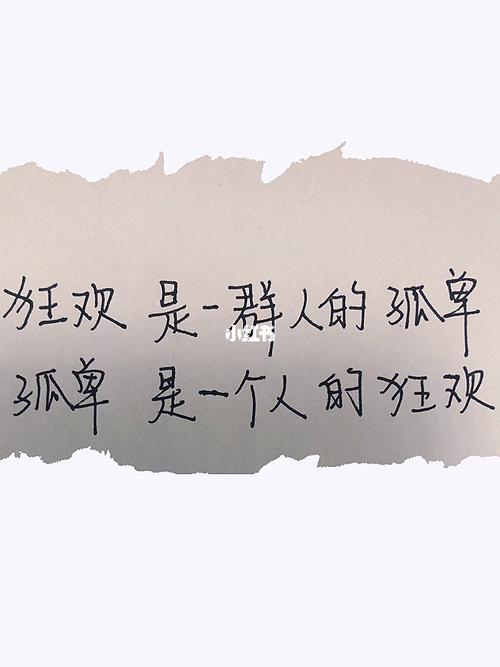 狂欢 是一群人的 孤单
小红书
孤单 是一个人 的 狂欢